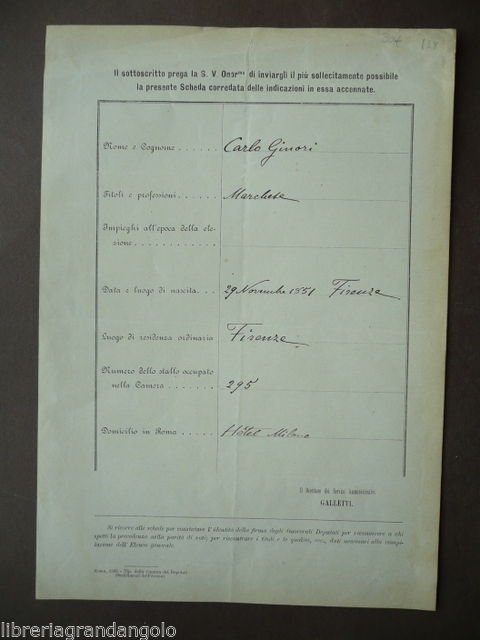 304 128
Il sottoscritto prega la S. V. Onor.ma di inviargli il più sollecitamente possibile
la presente Scheda corredata delle indicazioni in essa accennate.
Nome e Cognome . . . . . . Carlo Ginori
Titoli e professioni . . . . . Marchese
Impieghi all'epoca della ele-
zione . . . . . . . . . . . .
Data e luogo di nascita . . . 29 Novembre 1851 Firenze
Luogo di residenza ordinaria Firenze
Numero dello stallo occupato
nella Camera . . . . . . . 295
Domicilio in Roma . . . . . Hôtel Milano
Il Direttore dei Servizi Amministrativi
GALLETTI.
Si riceve alle schede per constatare l'identità della firma degli Onorevoli Deputati per riconoscere a chi
spetti la precedenza nella parità di voti; per riscontrare i titoli e le qualità, ecc., dati necessari alla compi-
lazione dell'Elenco generale.
Roma, Tip. della Camera dei Deputati
libreriagrandangolo